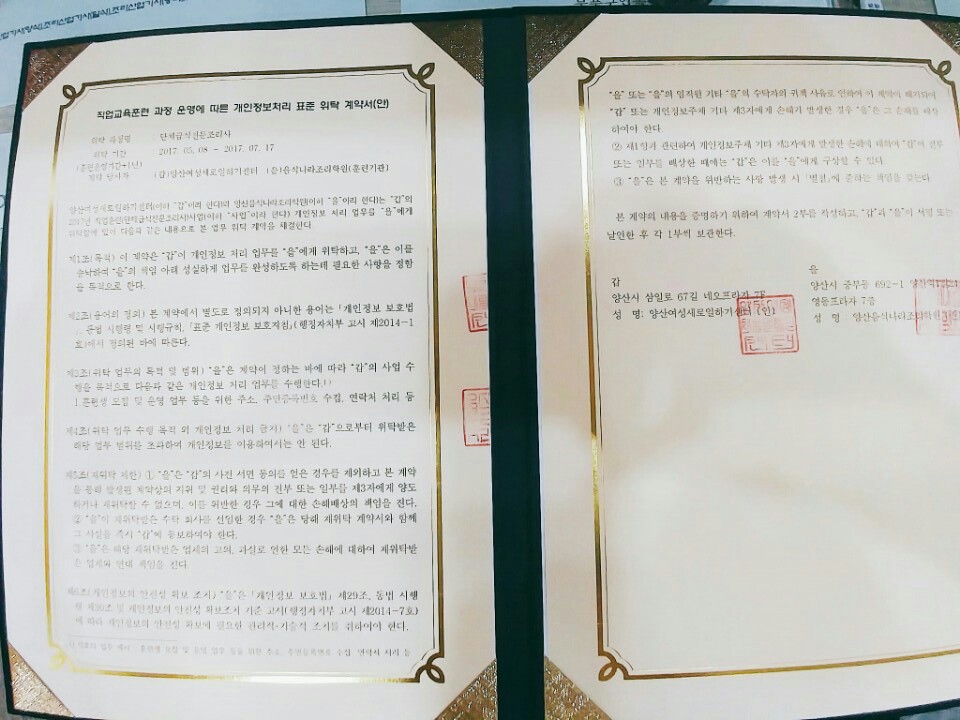 직업교육훈련 과정 운영에 따른 개인정보처리 표준 위탁 계약서(안)
위탁 과정명 단체급식전문조리사
위탁 기간 2017. 05. 08 - 2017. 07. 17
(훈련운영기간+1년)
계약 당사자 (갑)양산여성새로일하기센터 (을)음식나라조리학원(훈련기관)
양산여성새로일하기센터(이하 "갑"이라 한다)와 양산음식나라조리학원(이하 "을"이라 한다)는 "갑"의
2017년 직업훈련(단체급식전문조리사)사업(이하 "사업"이라 한다) 개인정보 처리 업무를 "을"에게
위탁함에 있어 다음과 같은 내용으로 본 업무 위탁 계약을 체결한다
제1조(목적) 이 계약은 "갑"이 개인정보 처리 업무를 "을"에게 위탁하고, "을"은 이를
승낙하여 "을"의 책임 아래 성실하게 업무를 완성하도록 하는데 필요한 사항을 정함
을 목적으로 한다.
제2조(용어의 정의) 본 계약에서 별도로 정의되지 아니한 용어는 「개인정보 보호법
, 동법 시행령 및 시행규칙, 「표준 개인정보 보호지침」(행정자치부 고시 제2014-1
호)에서 정의된 바에 따른다.
제3조(위탁 업무의 목적 및 범위) "을"은 계약이 정하는 바에 따라 "갑"의 사업 수
행을 목적으로 다음과 같은 개인정보 처리 업무를 수행한다.1)
1.훈련생 모집 및 운영 업무 등을 위한 주소, 주민등록번호 수집, 연락처 처리 등
제4조(위탁 업무 수행 목적 외 개인정보 처리 금지) "을"은 "갑"으로부터 위탁받은
해당 업무 범위를 초과하여 개인정보를 이용하여서는 안 된다.
제5조(재위탁 제한) ① "을"은 "갑"의 사전 서면 동의를 얻은 경우를 제외하고 본 계약
을 통해 발생된 계약상의 지위 및 권리와 의무의 전부 또는 일부를 제3자에게 양도
하거나 재위탁할 수 없으며, 이를 위반한 경우 그에 대한 손해배상의 책임을 진다.
② "을"이 재위탁받은 수탁 회사를 선임한 경우 "을"은 당해 재위탁 계약서와 함께
그 사실을 즉시 "갑"에 통보하여야 한다.
③ "을"은 해당 재위탁받은 업체의 고의, 과실로 인한 모든 손해에 대하여 재위탁받
은 업체와 연대 책임을 진다.
제6조(개인정보의 안전성 확보 조치) "을"은 「개인정보 보호법」 제29조, 동법 시행
령 제30조 및 개인정보의 안전성 확보조치 기준 고시(행정자치부 고시 제2014-7호)
에 따라 개인정보의 안전성 확보에 필요한 관리적·기술적 조치를 취하여야 한다.
훈련생 모집 및 운영 업무 등을 위한 주소, 주민등록번호 수집, 연락처 처리 등
"을" 또는 "을"의 임직원 기타 "을"의 수탁자의 귀책 사유로 인하여 이 계약이 해지되어
"갑" 또는 개인정보주체 기타 제3자에게 손해가 발생한 경우 "을"은 그 손해를 배상
하여야 한다.
② 제1항과 관련하여 개인정보주체 기타 제3자에게 발생한 손해에 대하여 "갑"이 전부
또는 일부를 배상한 때에는 "갑"은 이를 "을"에게 구상할 수 있다
③ "을"은 본 계약을 위반하는 사항 발생 시 "벌칙"에 준하는 책임을 갖는다.
본 계약의 내용을 증명하기 위하여 계약서 2부를 작성하고, "갑"과 "을"이 서명 또는
날인한 후 각 1부씩 보관한다.
갑
양산시 삼일로 67길 네오프라자 7F
성 명: 양산여성새로일하기센터 (인)
을
양산시 중부동 692-1
영동프라자 7층
성 명 : 양산음식나라조리학원